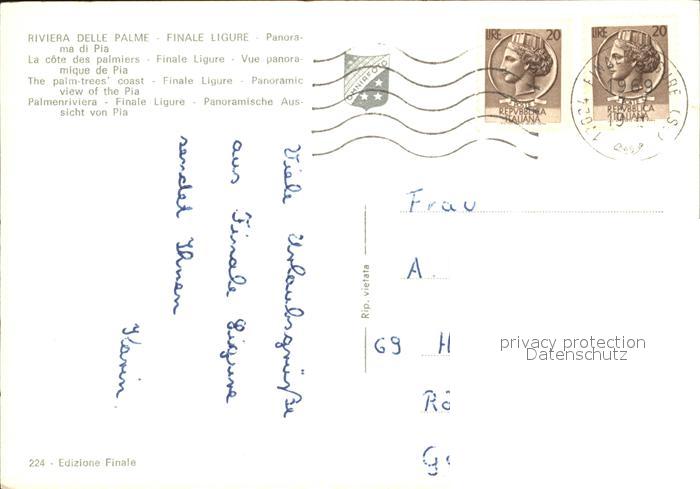 RIVIERA DELLE PALME - FINALE LIGURE - Panora-
ma di Pia
La côte des palmiers - Finale Ligure - Vue panora-
mique de Pia
The palm-trees' coast - Finale Ligure - Panoramic
view of the Pia
Palmenriviera - Finale Ligure - Panoramische Aus-
sicht von Pia
OMNIAFOTO
LIRE 20
POSTE
REPVBBLICA
ITALIANA
LIRE 20
REPVBBLICA
ITALIANA
17024
1969
19
Viele Urlaubsgrüße
aus Finale Ligure
sendet Ihnen
Karin.
Rip. vietata
Frau
A.
69 H
Rö
G
privacy protection
Datenschutz
224 - Edizione Finale